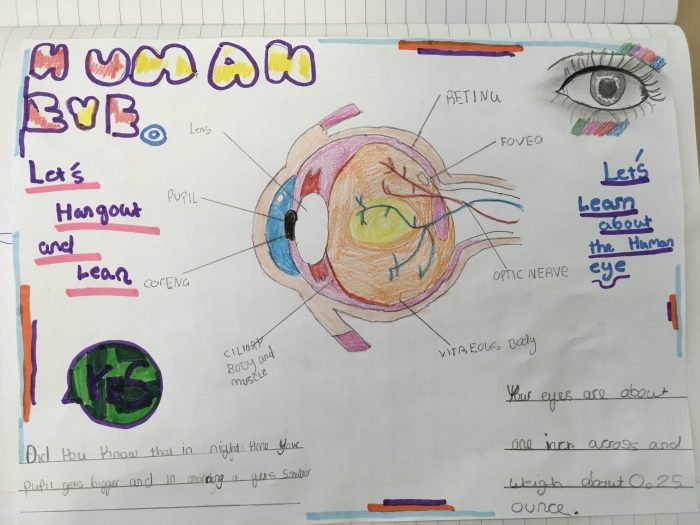 HUMAN
EYE.
Let's
Hangout
and
Lean
Lens
PUPIL
CORENG
CILIARY
BODY and
muscle
RETINA
FOVEA
OPTIC NERVE
VITREOUS Body
Let's
Learn
about
the Human
eye
YES
Did You Know that in night time your
pupil gets bigger and in morning it gets smaller
Your eyes are about
one inch across and
weigh about 0.25
ounce.